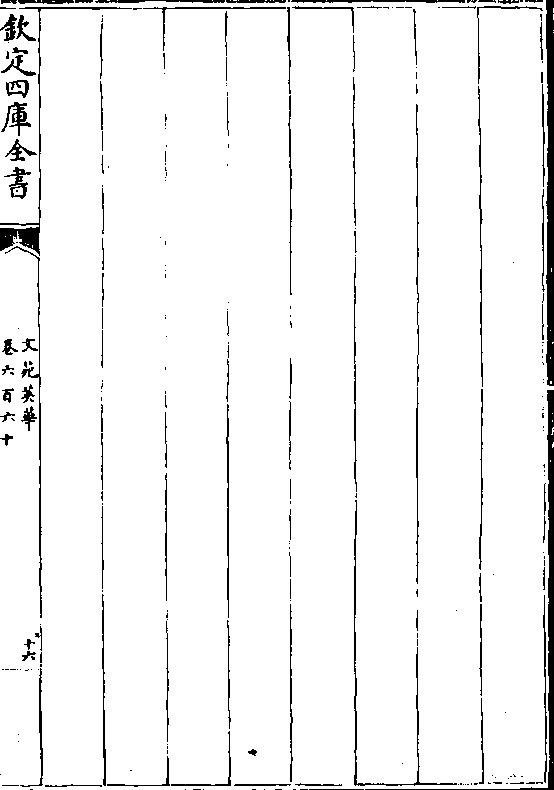 欽定四庫全書
文苑英華
卷六百六十
十六